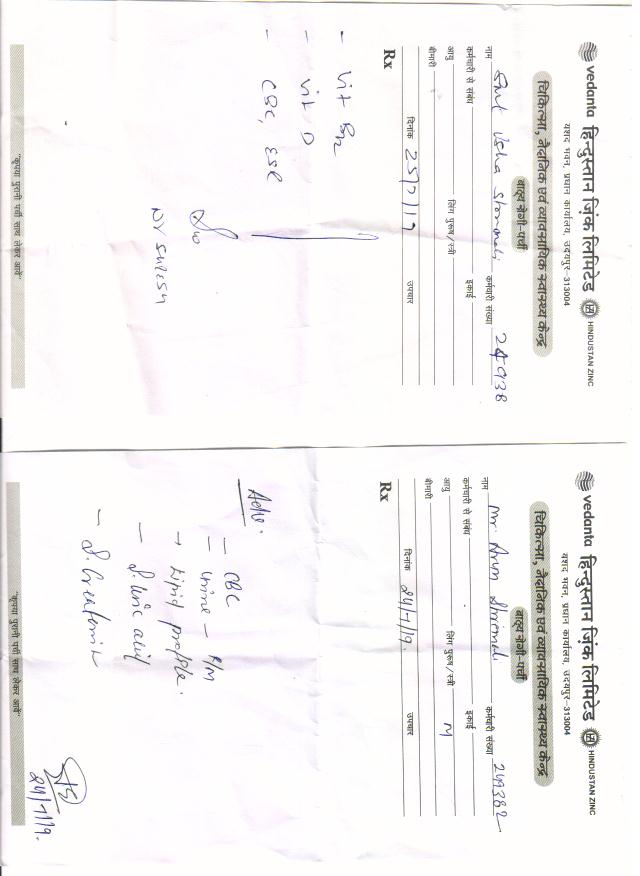 vedanta हिन्दुस्तान ज़िंक लिमिटेड HINDUSTAN ZINC
यशद भवन, प्रधान कार्यालय, उदयपुर–313004
चिकित्सा, नैदानिक एवं व्यावसायिक स्वास्थ्य केन्द्र
बाह्य रोगी-पर्ची
नाम Smt Usha कर्मचारी संख्या
कर्मचारी से संबंध इकाई
आयु लिंग पुरुष/स्त्री
बीमारी
Rx दिनांक 25/7/19 उपचार
- Vit B12
- Vit D
- CBC, ESR
"कृपया पुरानी पर्ची साथ लेकर आवें"
vedanta हिन्दुस्तान ज़िंक लिमिटेड HINDUSTAN ZINC
यशद भवन, प्रधान कार्यालय, उदयपुर–313004
चिकित्सा, नैदानिक एवं व्यावसायिक स्वास्थ्य केन्द्र
बाह्य रोगी-पर्ची
नाम Mr. Arun कर्मचारी संख्या 249382
कर्मचारी से संबंध इकाई
आयु लिंग पुरुष/स्त्री M
बीमारी
Rx दिनांक 24/7/19. उपचार
Adv.
- CBC
- Urine - R/M
- Lipid profile.
- S. Uric acid
- S. Creatinine
24/7/19.
"कृपया पुरानी पर्ची साथ लेकर आवें"